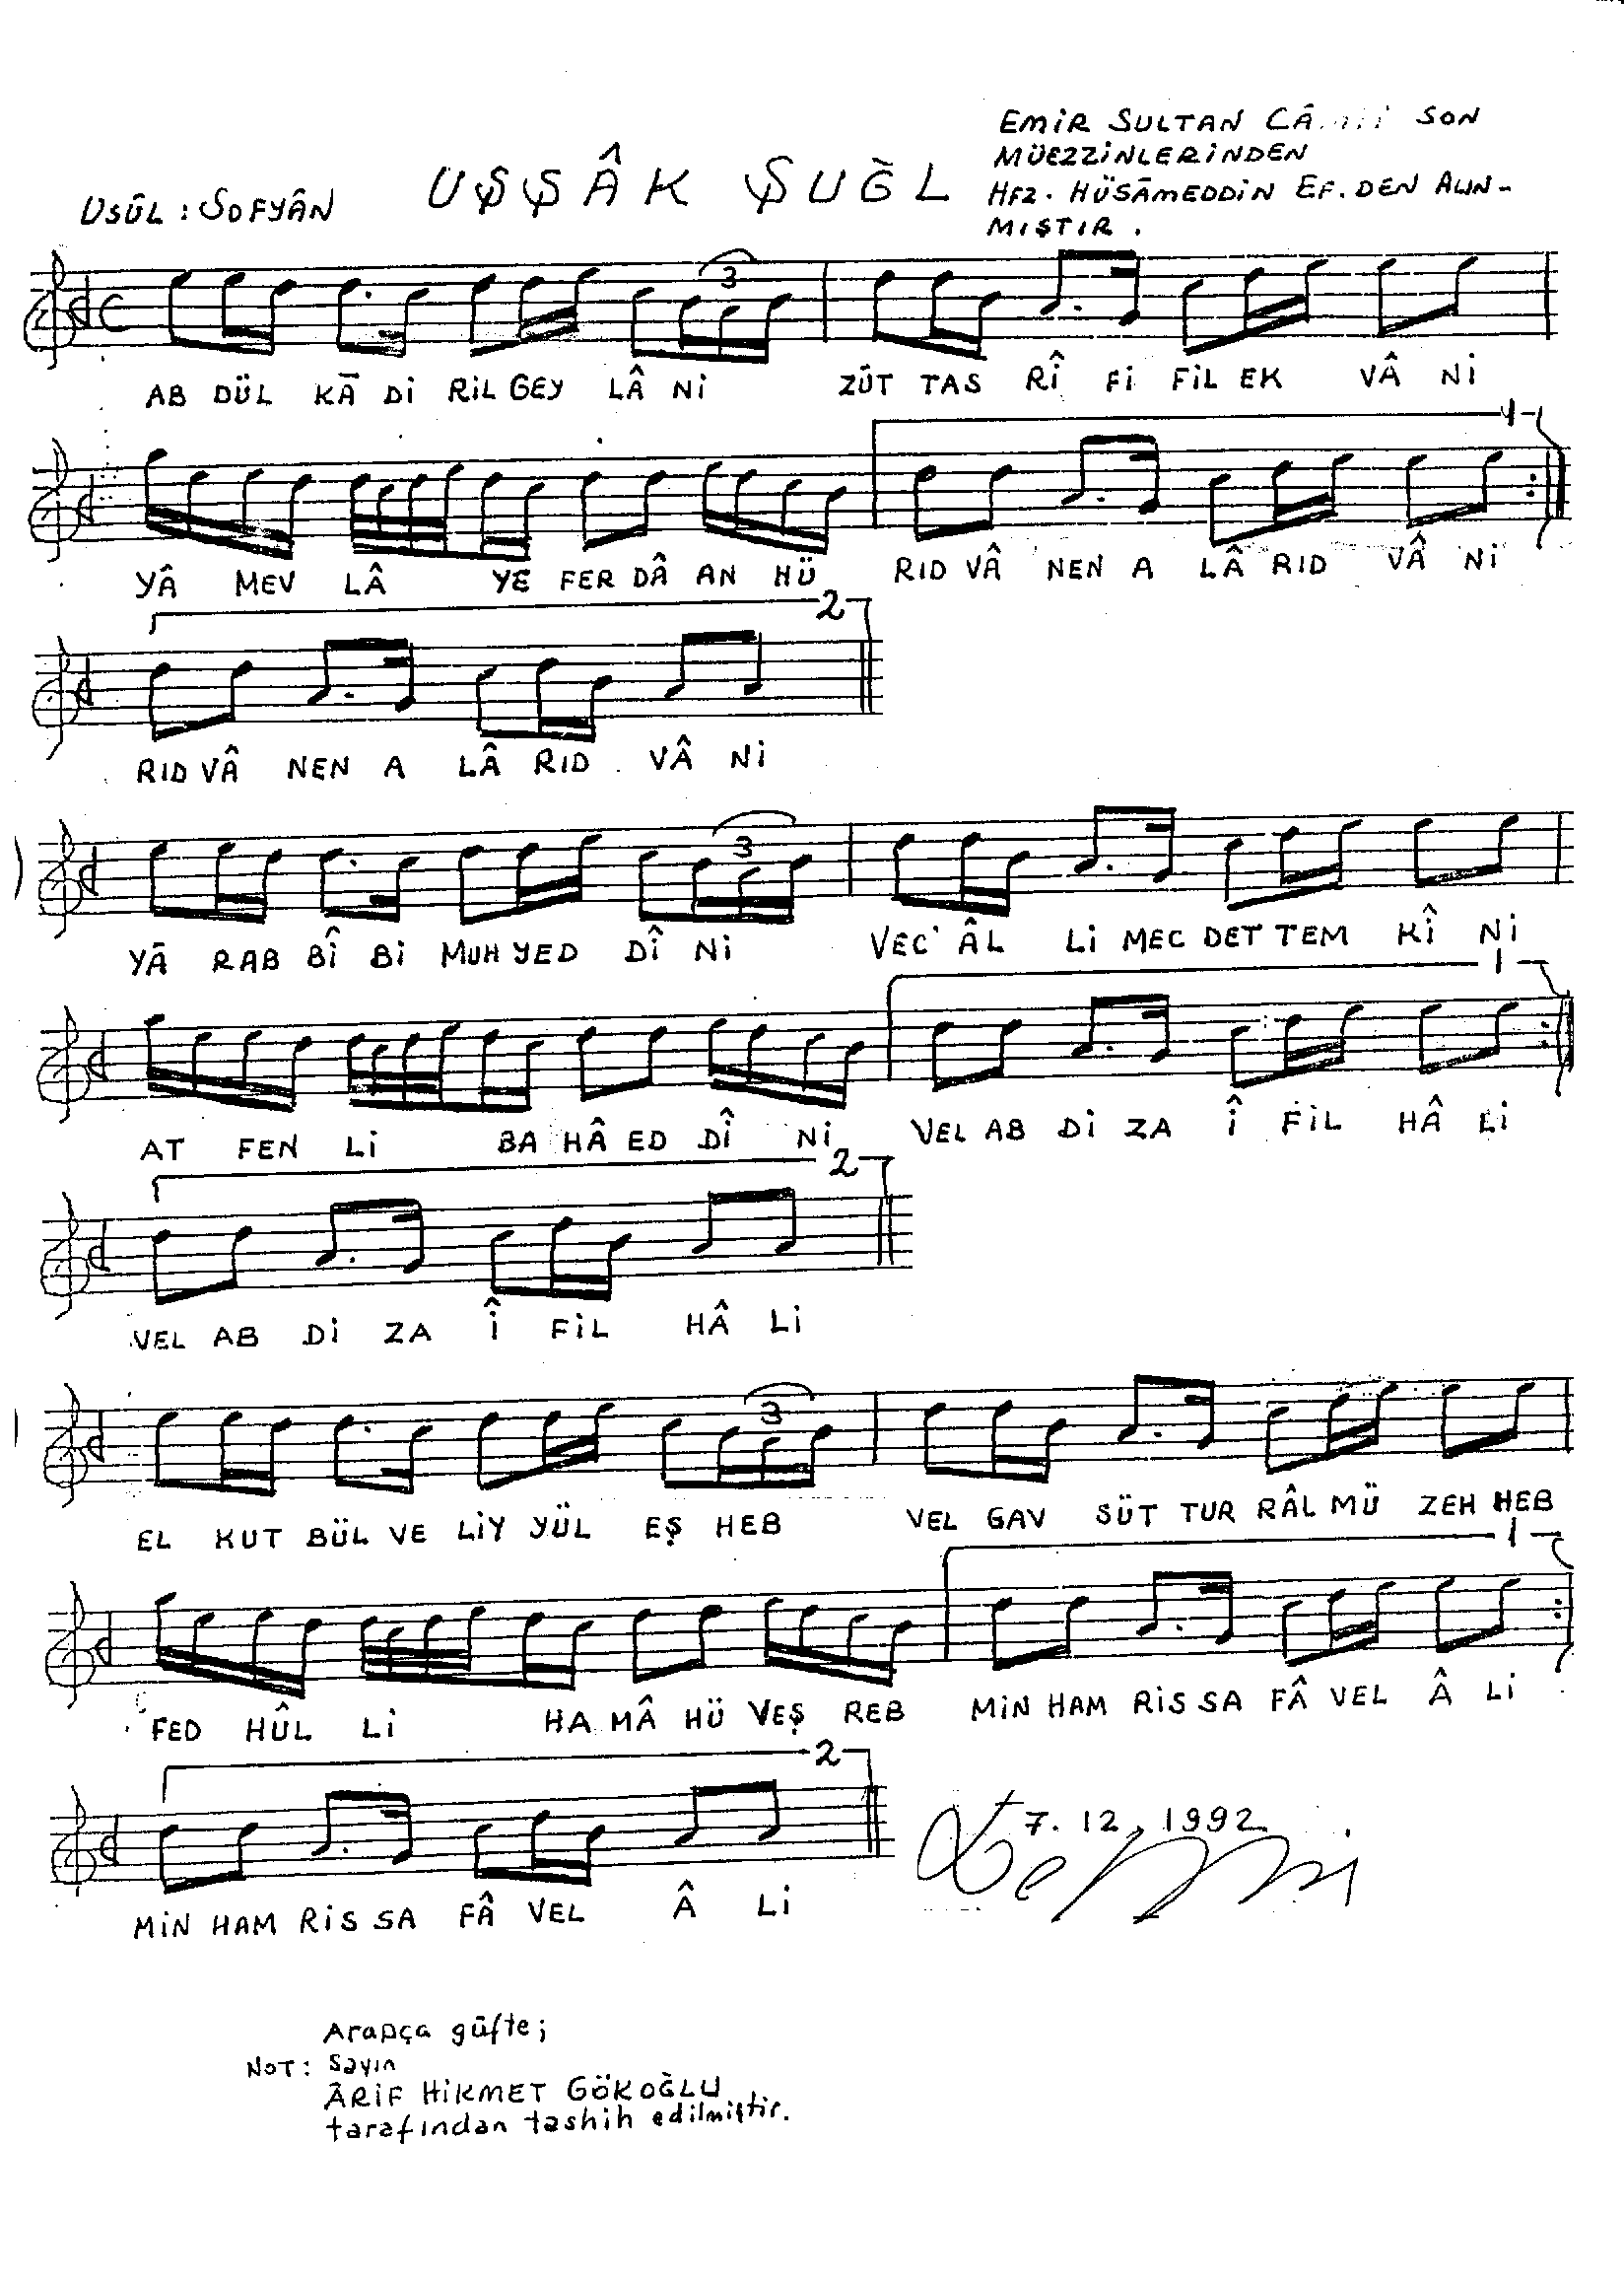 EMİR SULTAN SON
MÜEZZİNLERİNDEN
HFZ. HÜSÂMEDDİN EF. DEN ALIN-
MIŞTIR.
UŞŞÂK ŞUĞL
USÛL : SOFYÂN
3
AB DÜL KĀ Dİ RİL GEY LÂ Nİ ZÛT TAS RÎ Fİ FİL EK VÂ Nİ
1
YÂ MEV LÂ YE FER DÂ AN HÜ RID VÂ NEN A LÂ RID VÂ Nİ
2
RID VÂ NEN A LÂ RID VÂ Nİ
3
YĀ RAB BÎ Bİ MUH YED DÎ Nİ VEC' ÂL Lİ MEC DET TEM KÎ Nİ
1
AT FEN Lİ BA HÂ ED DÎ Nİ VEL AB Dİ ZA Î FİL HÂ Lİ
2
VEL AB Dİ ZA Î FİL HÂ Lİ
3
EL KUT BÜL VE LİY YÜL EŞ HEB VEL GAV SÜT TUR RÂL MÜ ZEH HEB
1
FED HÛL Lİ HA MÂ HÜ VEŞ REB MİN HAM RİS SA FÂ VEL Â Lİ
2
MİN HAM RİS SA FÂ VEL Â Lİ
7.12.1992
Arapça güfte;
NOT: Sayın
ÂRİF HİKMET GÖKOĞLU
tarafından tashih edilmiştir.